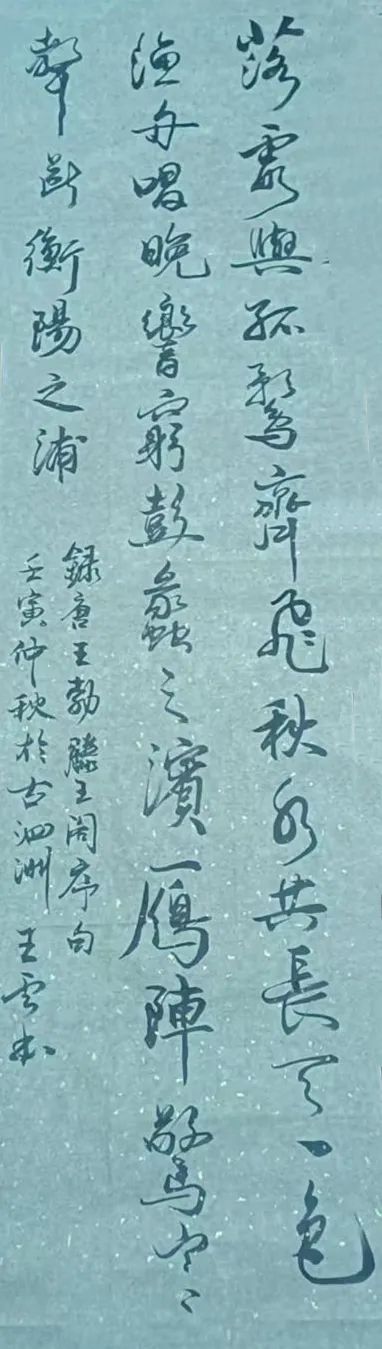 落霞與孤鶩齊飛秋水共長天一色
漁舟唱晚響窮彭蠡之濱鴈陣驚寒
聲斷衡陽之浦
録唐王勃滕王阁序句
壬寅仲秋於古泗洲王雲